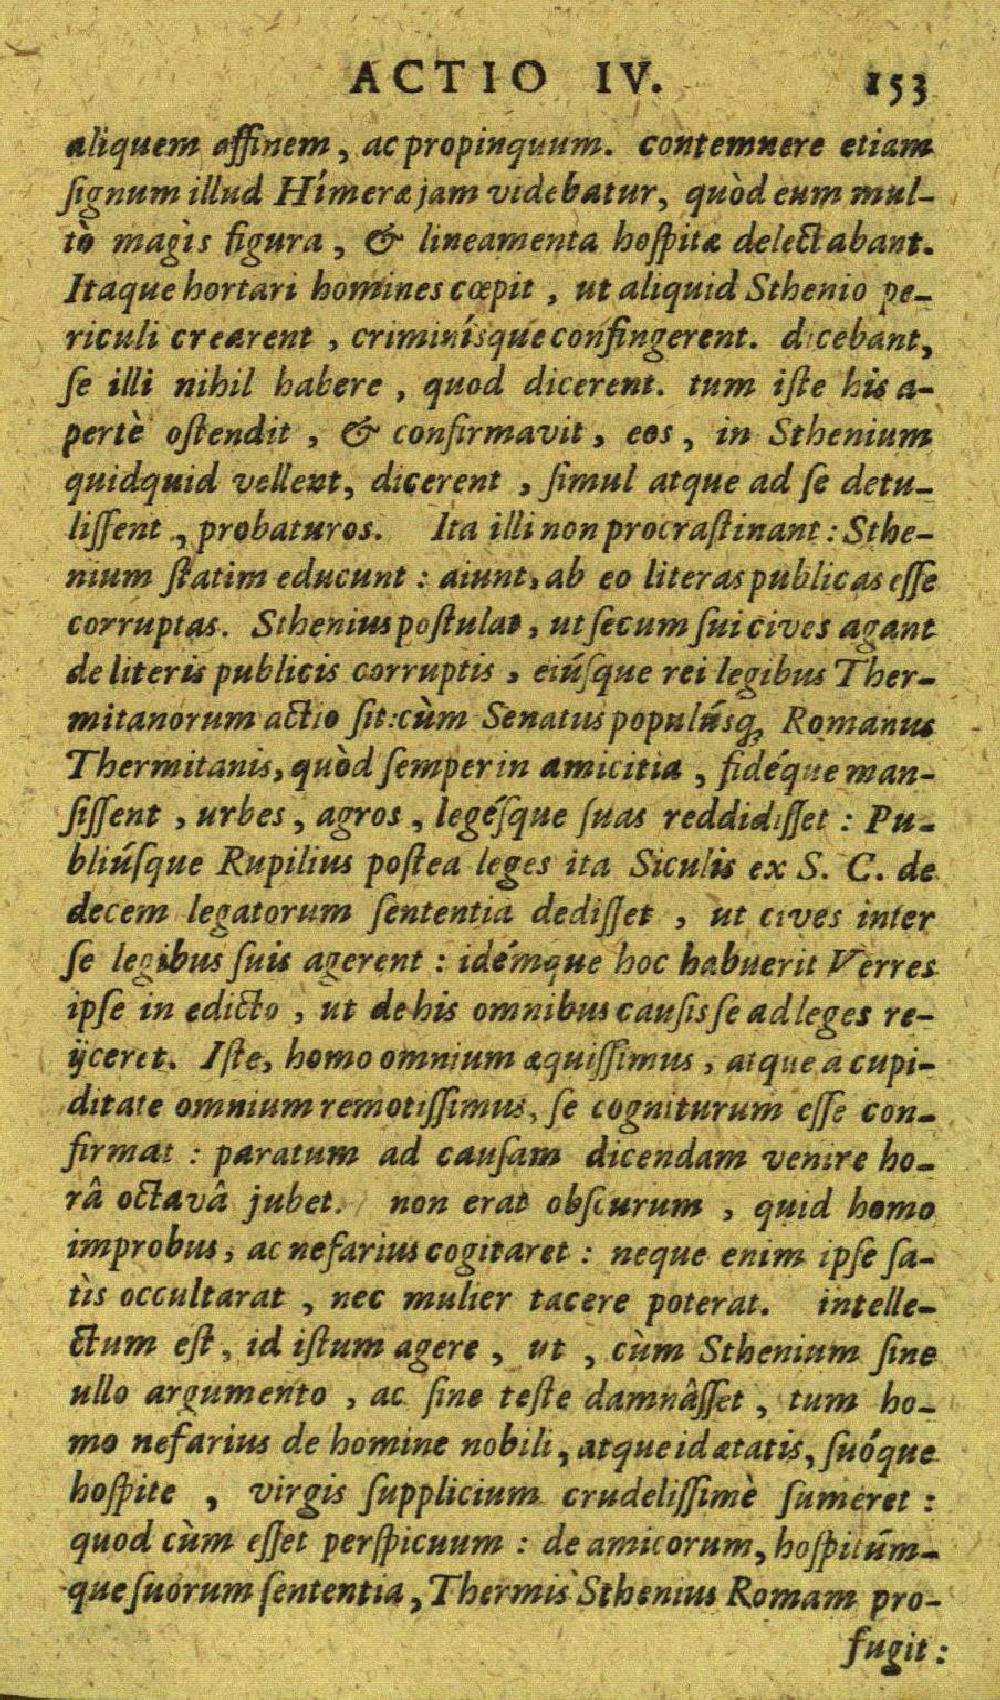 ACTIO IV. 153
aliquem affinem, ac propinquum. contemnere etiam
ſignum illud Hímeræ jam videbatur, quòd eum mul-
tò magìs figura, & lineamenta hoſpitæ delectabant.
Itaque hortari homines cœpit, ut aliquid Sthenio pe-
riculi crearent, criminíſque confingerent. dicebant,
ſe illi nihil habere, quod dicerent. tum iſte his a-
pertè oſtendit, & confirmavit, eos, in Sthenium
quidquid vellent, dicerent, ſimul atque ad ſe detu-
liſſent, probaturos. Ita illi non procraſtinant: Sthe-
nium ſtatim educunt: aiunt, ab eo literas publicas eſſe
corruptas. Sthenius poſtulat, ut ſecum ſui cives agant
de literis publicis corruptis, eiúſque rei legibus Ther-
mitanorum actio ſit: cùm Senatus populúsq; Romanus
Thermitanis, quòd ſemper in amicitia, fidéque man-
ſiſſent, urbes, agros, legéſque ſuas reddidiſſet: Pu-
bliúſque Rupilius poſtea leges ita Siculis ex S. C. de
decem legatorum ſententia dediſſet, ut cives inter
ſe legibus ſuis agerent: idémque hoc habuerit Verres
ipſe in edicto, ut de his omnibus cauſis ſe ad leges re-
ijceret. Iſte, homo omnium æquiſſimus, atque a cupi-
ditate omnium remotiſſimus, ſe cogniturum eſſe con-
firmat: paratum ad cauſam dicendam venire ho-
râ octavâ jubet. non erat obſcurum, quid homo
improbus, ac nefarius cogitaret: neque enim ipſe ſa-
tìs occultarat, nec mulier tacere poterat. intelle-
ctum eſt, id iſtum agere, ut, cùm Sthenium ſine
ullo argumento, ac ſine teſte damnâſſet, tum ho-
mo nefarius de homine nobili, atque id ætatis, ſuóque
hoſpite, virgis ſupplicium crudeliſſimè ſumeret:
quod cùm eſſet perſpicuum: de amicorum, hoſpitúm-
que ſuorum ſententia, Thermis Sthenius Romam pro-
fugit: